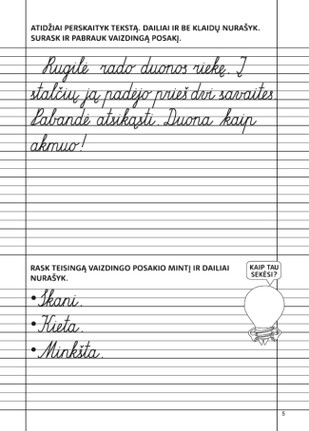 ATIDŽIAI PERSKAITYK TEKSTĄ. DAILIAI IR BE KLAIDŲ NURAŠYK.
SURASK IR PABRAUK VAIZDINGĄ POSAKĮ.
Rugilė rado duonos riekę. Į
stalčių ją padėjo prieš dvi savaites.
Pabandė atsikąsti. Duona kaip
akmuo!
RASK TEISINGĄ VAIZDINGO POSAKIO MINTĮ IR DAILIAI
NURAŠYK.
KAIP TAU
SEKĖSI?
• Skani.
• Kieta.
• Minkšta.
5